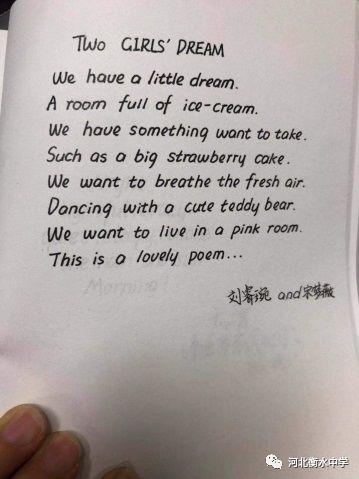 TWO GIRLS' DREAM
We have a little dream.
A room full of ice-cream.
We have something want to take.
Such as a big strawberry cake.
We want to breathe the fresh air.
Dancing with a cute teddy bear.
We want to live in a pink room.
This is a lovely poem...
刘睿琬 and 宋梦薇
河北衡水中学